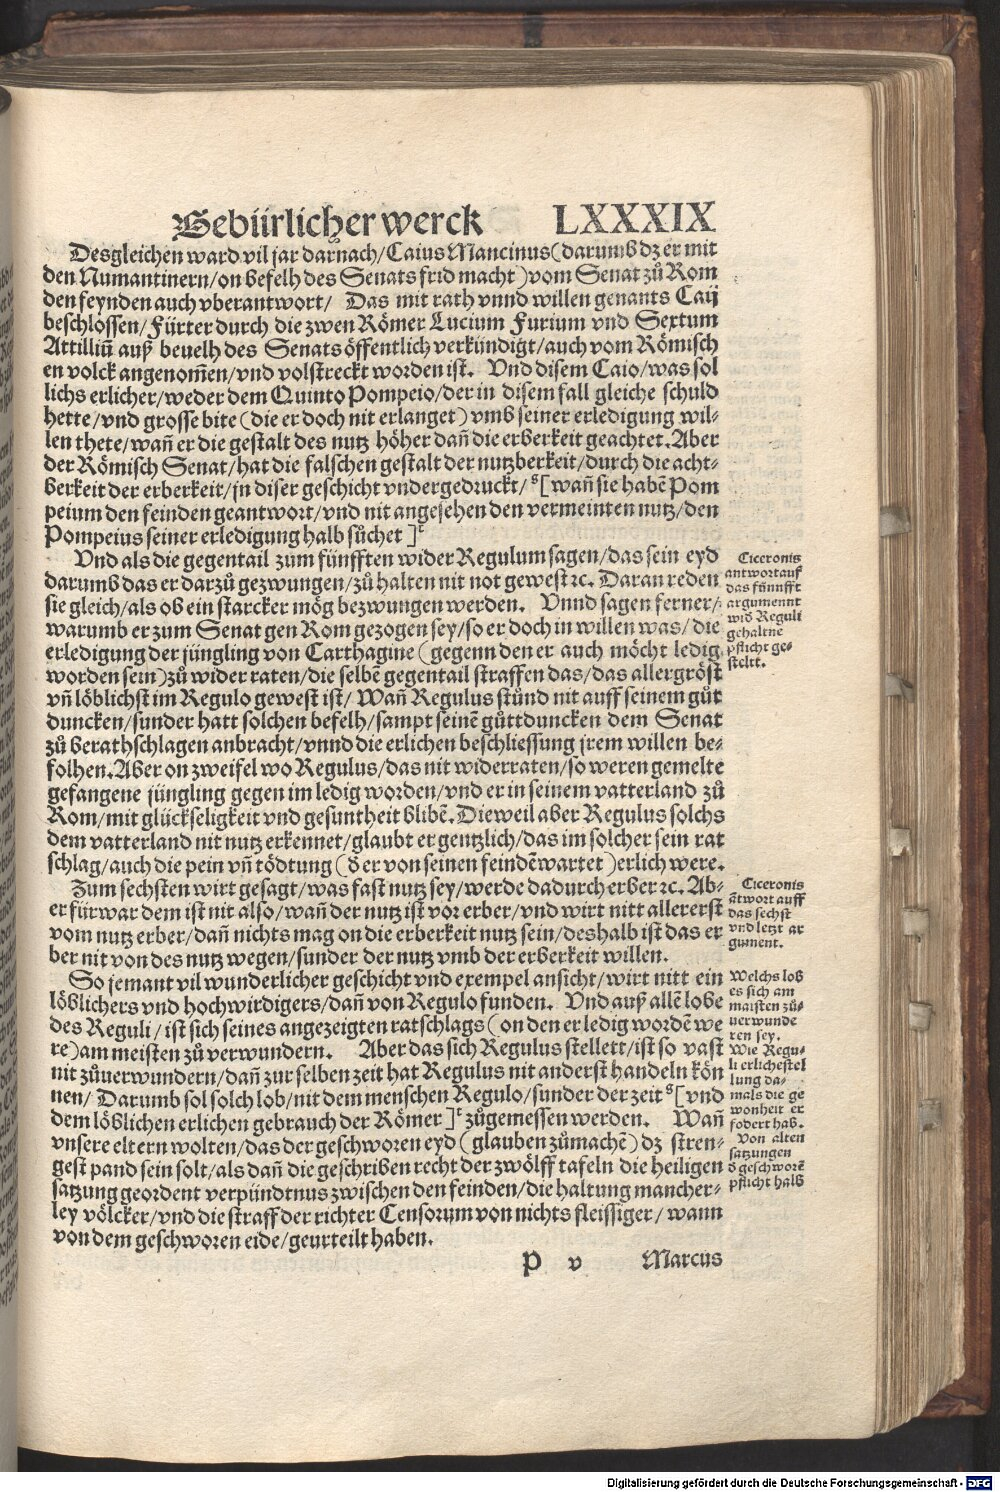 Gebürlicher werck LXXXIX
Desgleichen ward vil jar darnach/Caius Mancinus(darumb dz er mit
den Numantinern/on befelh des Senats frid macht)vom Senat zů Rom
den feynden auch vberantwort/ Das mit rath vnnd willen genants Caij
beschlossen/Fürter durch die zwen Römer Lucium Furium vnd Sextum
Attilliū auß beuelh des Senats öffentlich verkündigt/auch vom Römisch
en volck angenom̄en/vnd volstreckt worden ist. Vnd disem Caio/was sol
lichs erlicher/weder dem Quinto Pompeio/der in disem fall gleiche schuld
hette/vnd grosse bite (die er doch nit erlanget) vmb seiner erledigung wil-
len thete/wañ er die gestalt des nutz höher dañ die erberkeit geachtet. Aber
der Römisch Senat/hat die falschen gestalt der nutzberkeit/durch die acht-
berkeit der erberkeit/jn diser geschicht vndergedruckt/ ˢ[wañ sie habē Pom
peium den feinden geantwort/vnd nit angesehen den vermeinten nutz/den
Pompeius seiner erledigung halb sůchet ]ᵗ
Vnd als die gegentail zum fünfften wider Regulum sagen/das sein eyd
darumb das er darzů gezwungen/zů halten nit not gewest ꝛc. Daran reden
sie gleich/als ob ein starcker mög bezwungen werden. Vnnd sagen ferner/
warumb er zum Senat gen Rom gezogen sey/so er doch in willen was/die
erledigung der jüngling von Carthagine (gegenn den er auch möcht ledig
worden sein)zů wider raten/die selbē gegentail straffen das/das allergröst
vñ löblichst im Regulo gewest ist/ Wañ Regulus stůnd nit auff seinem gůt
duncken/sunder hatt solchen befelh/sampt seinē gůttduncken dem Senat
zů berathschlagen anbracht/vnnd die erlichen beschliessung jrem willen be-
folhen. Aber on zweifel wo Regulus/das nit widerraten/so weren gemelte
gefangene jüngling gegen im ledig worden/vnd er in seinem vatterland zů
Rom/mit glückseligkeit vnd gesuntheit blibē. Dieweil aber Regulus solchs
dem vatterland nit nutz erkennet/glaubt er gentzlich/das im solcher sein rat
schlag/auch die pein vñ tödtung (d̄ er von seinen feindē wartet)erlich were.
Zum sechsten wirt gesagt/was fast nutz sey/werde dadurch erber ꝛc. Ab-
er fürwar dem ist nit also/wañ der nutz ist vor erber/vnd wirt nitt allererst
vom nutz erber/dañ nichts mag on die erberkeit nutz sein/deshalb ist das er
ber nit von des nutz wegen/sunder der nutz vmb der erberkeit willen.
So jemant vil wunderlicher geschicht vnd exempel ansicht/wirt nitt ein
löblichers vnd hochwirdigers/dañ von Regulo funden. Vnd auß allē lobe
des Reguli/ist sich seines angezeigten ratschlags (on den er ledig wordē we
re)am meisten zů verwundern. Aber das sich Regulus stellett/ist so vast
nit zůverwundern/dañ zur selben zeit hat Regulus nit anderst handeln kön
nen/ Darumb sol solch lob/nit dem menschen Regulo/sunder der zeit ˢ[vnd
dem löblichen erlichen gebrauch der Römer]ᵗ zůgemessen werden. Wañ
vnsere eltern wolten/das der geschworen eyd (glauben zůmachē) dz stren-
gest pand sein solt/als dañ die geschriben recht der zwölff tafeln die heiligen
satzung geordent verpündtnus zwischen den feinden/die haltung mancher-
ley völcker/vnd die straff der richter Censorum von nichts fleissiger/wann
von dem geschworen eide/geurteilt haben.
P v Marcus
Ciceronis
antwort auf
das fünnfft
argumennt
wid̄ Reguli
gehaltne
pflicht ge-
steltt.
Ciceronis
ātwort auff
das sechst
vnd letzt ar
gument.
Welchs lob
es sich am
maisten zů-
verwunde
ren sey.
Wie Regu-
li erlichestel
lung da-
mals die ge
wonheit er
fodert hab.
Von alten
satzungen
d̄ geschworē
pflicht halb
Digitalisierung gefördert durch die Deutsche Forschungsgemeinschaft - DFG